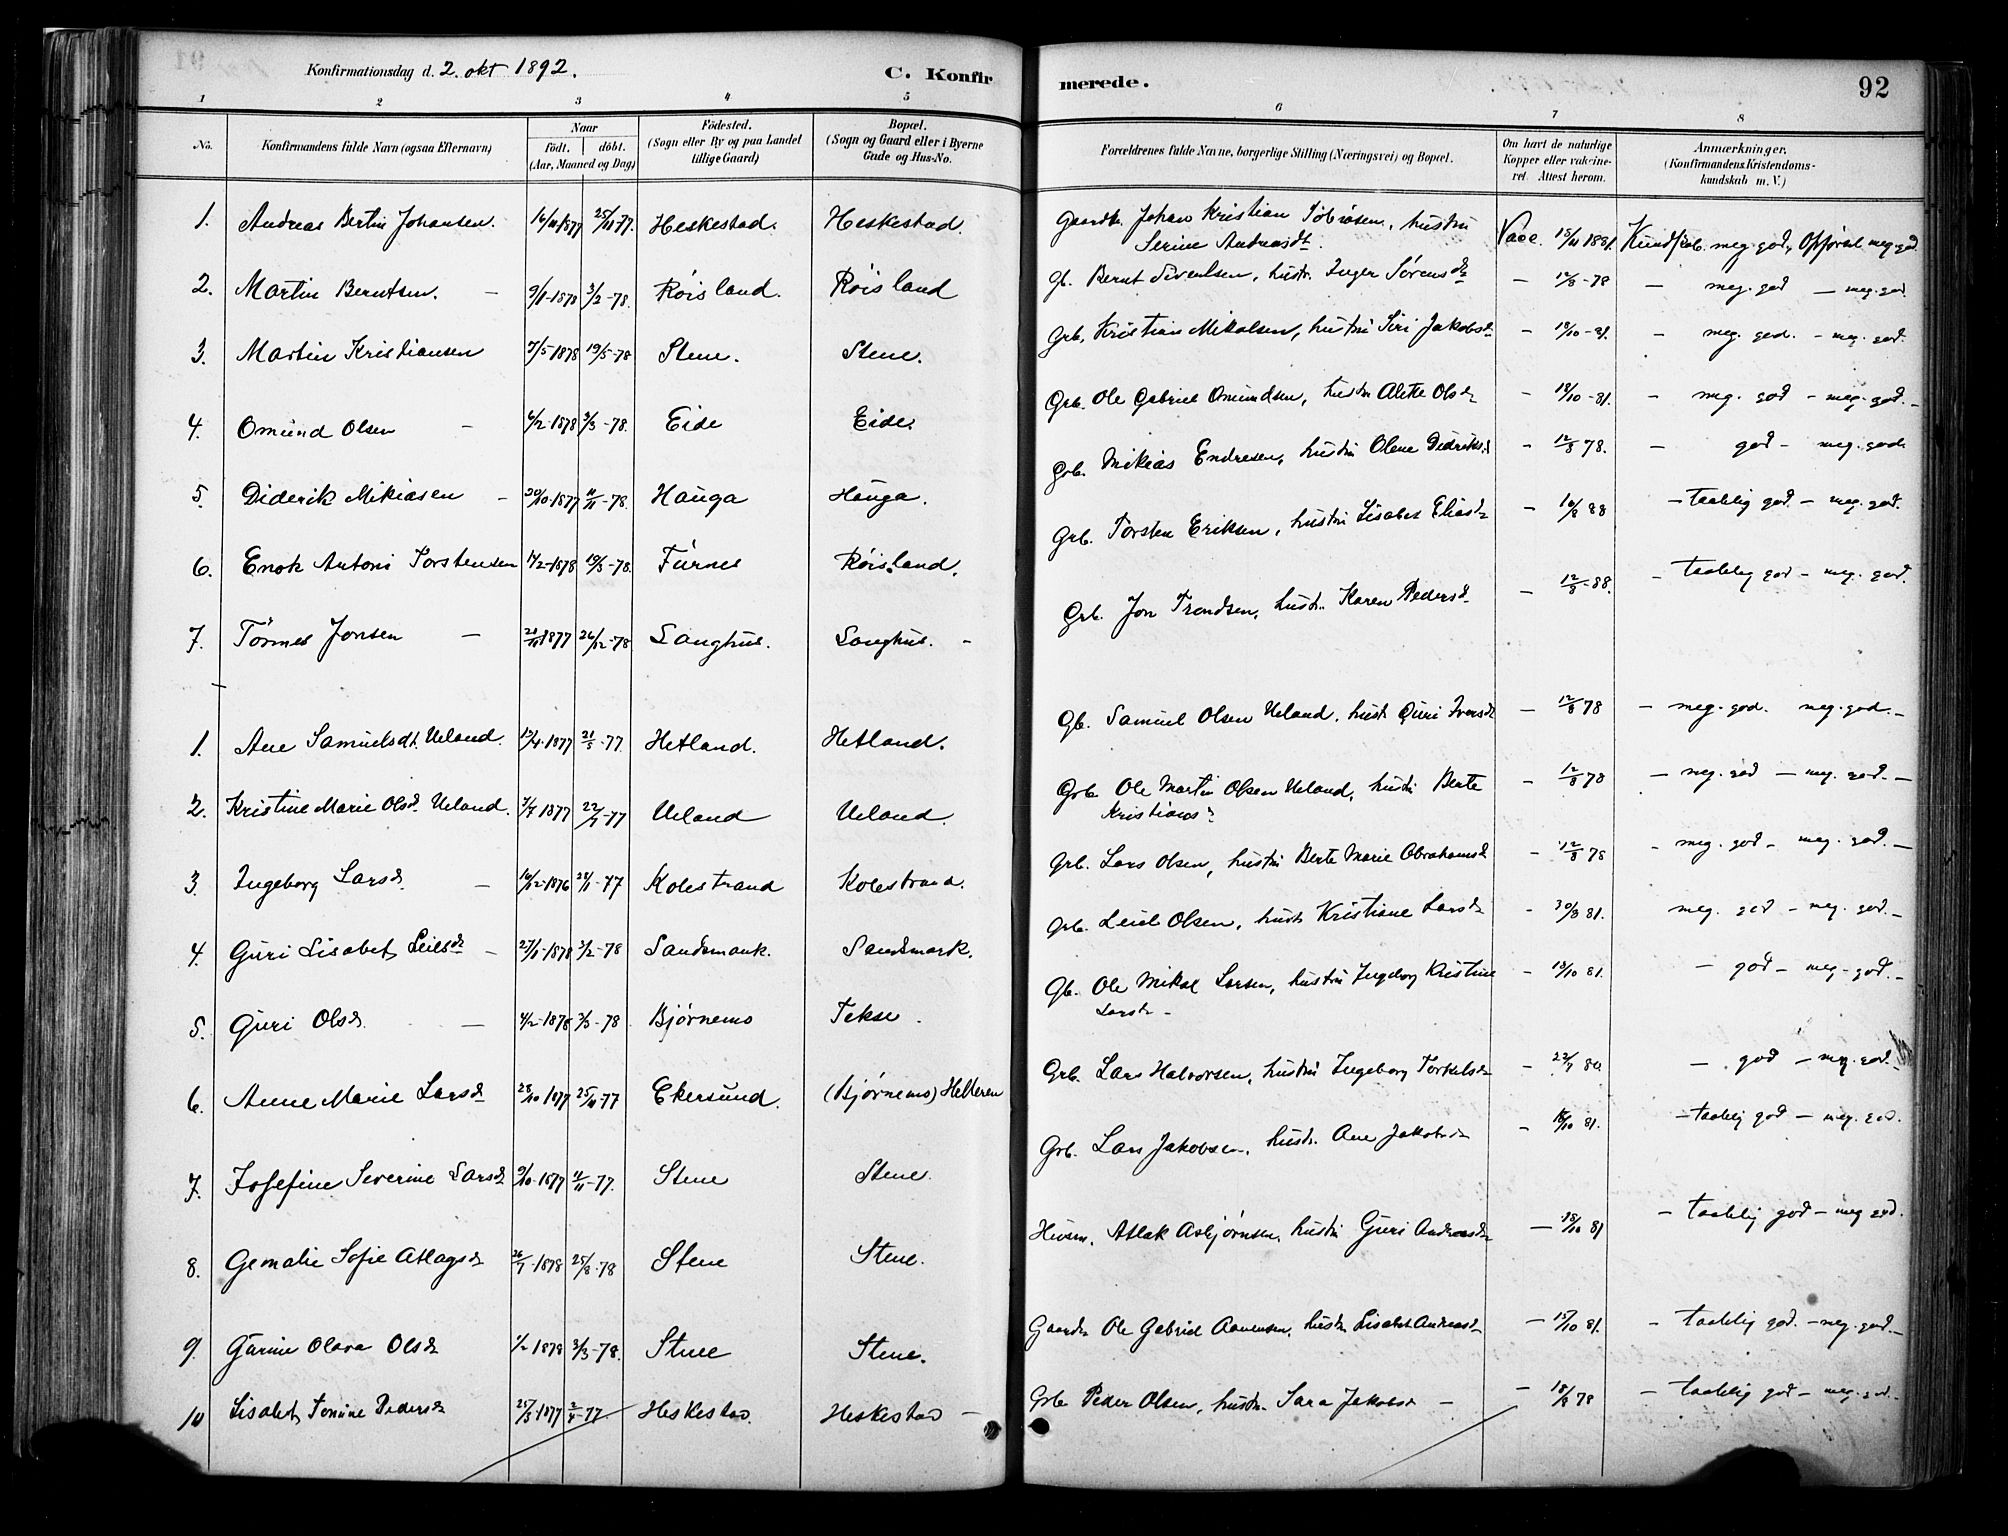 Konfirmationsdag d. 2. okt 1892.
C. Konfirmerede.
92
1 2 3 4 5 6 7 8
No.
Konfirmandens fulde Navn (ogsaa Efternavn)
Naar
født. | döbt.
(Aar, Maaned og Dag)
Födested.
(Sogn eller By og paa Landet
tillige Gaard)
Bopæl.
(Sogn og Gaard eller i Byerne
Gade og Hus-No.
Forældrenes fulde Navne, borgerlige Stilling (Næringsvei) og Bopæl.
Om havt de naturlige
Kopper eller vakcine-
ret. Attest herom.
Anmærkninger,
(Konfirmandens Kristendoms-
kundskab m. V.)
1. Andreas Bertin Johansen. 25/11-77. Heskestad. Heskestad. Johan Kristian, hustru
Serine Andreasdt. Vacc. 1881. Kundskab. meg. god, Opførsel meg. god.
2. Martin Berntsen. 3/2-78. Røisland. Røisland Gb. Bernt Sivertsen, hustr. Inger Sørensd. - 12/8-78 - meg. god - meg. god
3. Martin Kristiansen 7/5-1878 19/5-78 Stene. Stene. Grb. Kristian Mikalsen, hustru Siri Jakobsd. - 18/10-81. - meg. god. - meg. god.
4. Omund Olsen 6/2-1878 3/3-78. Eide Eide. Grb. Ole Gabriel Omundsen, hustr. Olsd. - 18/10-81. - meg. god - meg. god.
5. Diderik Mikiasen 20/10-1877 Hauga Hauga. Grb. Mikias Endresen, hustru Olene Didriksd. - 12/8 78. - god - meg. god
6. Enok Antoni Torstensen 1878 19/5-78. Furnes Røisland. Grb. Torsten Eriksen, hustru Lisabet Eliasd. - 88 - taalelig god - meg. god.
7. Tørnes Jonsen 1877 26/12-78 Langhus. Langhus. - Grb. Jon Trondsen, hustr. Karen Pedersd. - 12/8-88. - taalelig god - meg. god.
1. Ane Samuelsdt. Ueland. 1877 21/5-77 Hetland. Hetland. Gb. Samuel Olsen Ueland, hust. Guri Iversd. - 12/8 78 - meg. god. meg. god.
2. Kristine Marie Olsd. Ueland. 1877 22/7-77 Ueland Ueland. Grb. Ole Martin Olsen Ueland, hustr. Berte
Kristiansd. - 12/8 78 - meg. god - meg. god.
3. Ingeborg Larsd. 1876 77 Kolestrand Kolestrand. Grb. Lars Olsen, hustru Berte Marie Abrahamsd. - 12/8 78 - meg. god - meg. god.
4. Guri Lisabet 27/1-1878 3/2-78 Sandsmark. Sandsmark. Grb. Olsen, hustr. Kristiane Larsd. - 30/8 81. meg. god - meg. god.
5. Guri Olsd. 4/2-1878 3/3-78 Bjørnemo Tekse. Gb. Ole Mikal Larsen, hustru Ingeborg Kristine
Larsd. - 18/10 81. - god - meg. god.
6. Anne Marie Larsd. 28/10 1877 25/11-77 Ekersund. (Bjørnemo) Helleren Grb. Lars Halvorsen, hustru Ingeborg Torkelsd. - god - meg. god.
7. Josefine Severine Larsd. 9/10-1877 11/11-77. Stene Stene. Grb. Lars Jakobsen, hustr. Ane Jakobsd. - 18/10 81. - taalelig god - meg. god.
8. Gemalie Sofie Atlagsd. 26/7-1878 25/8-78 Stene Stene. Husm. Atlak Asbjørnsen, hustru Guri Andreasd. - 18/10 81 - taalelig god - meg. god.
9. Gurine Olava Olsd. 1/2 1878 3/3-78. Stene Stene. Ole Gabriel Aanensen, hustr. Lisabet Andreasd. - 10 81. - taalelig god. - meg. god.
10 Lisabet Tomine Pedersd. 25/3-1877 2/4-77 Heskestad. Heskestad - Grb. Peder Olsen, hustr. Sara Jakobsd. - 18/8 78 - taalelig god - meg. god.